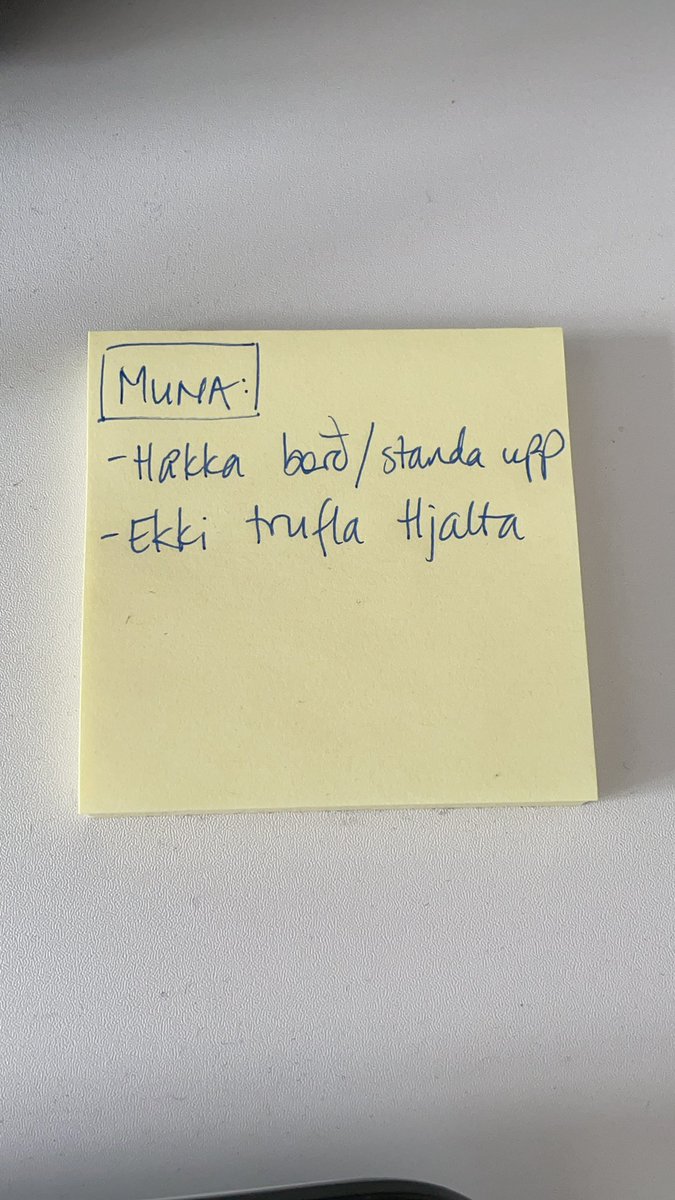 MUNA:
- Hækka borð/standa upp
- Ekki trufla Hjalta